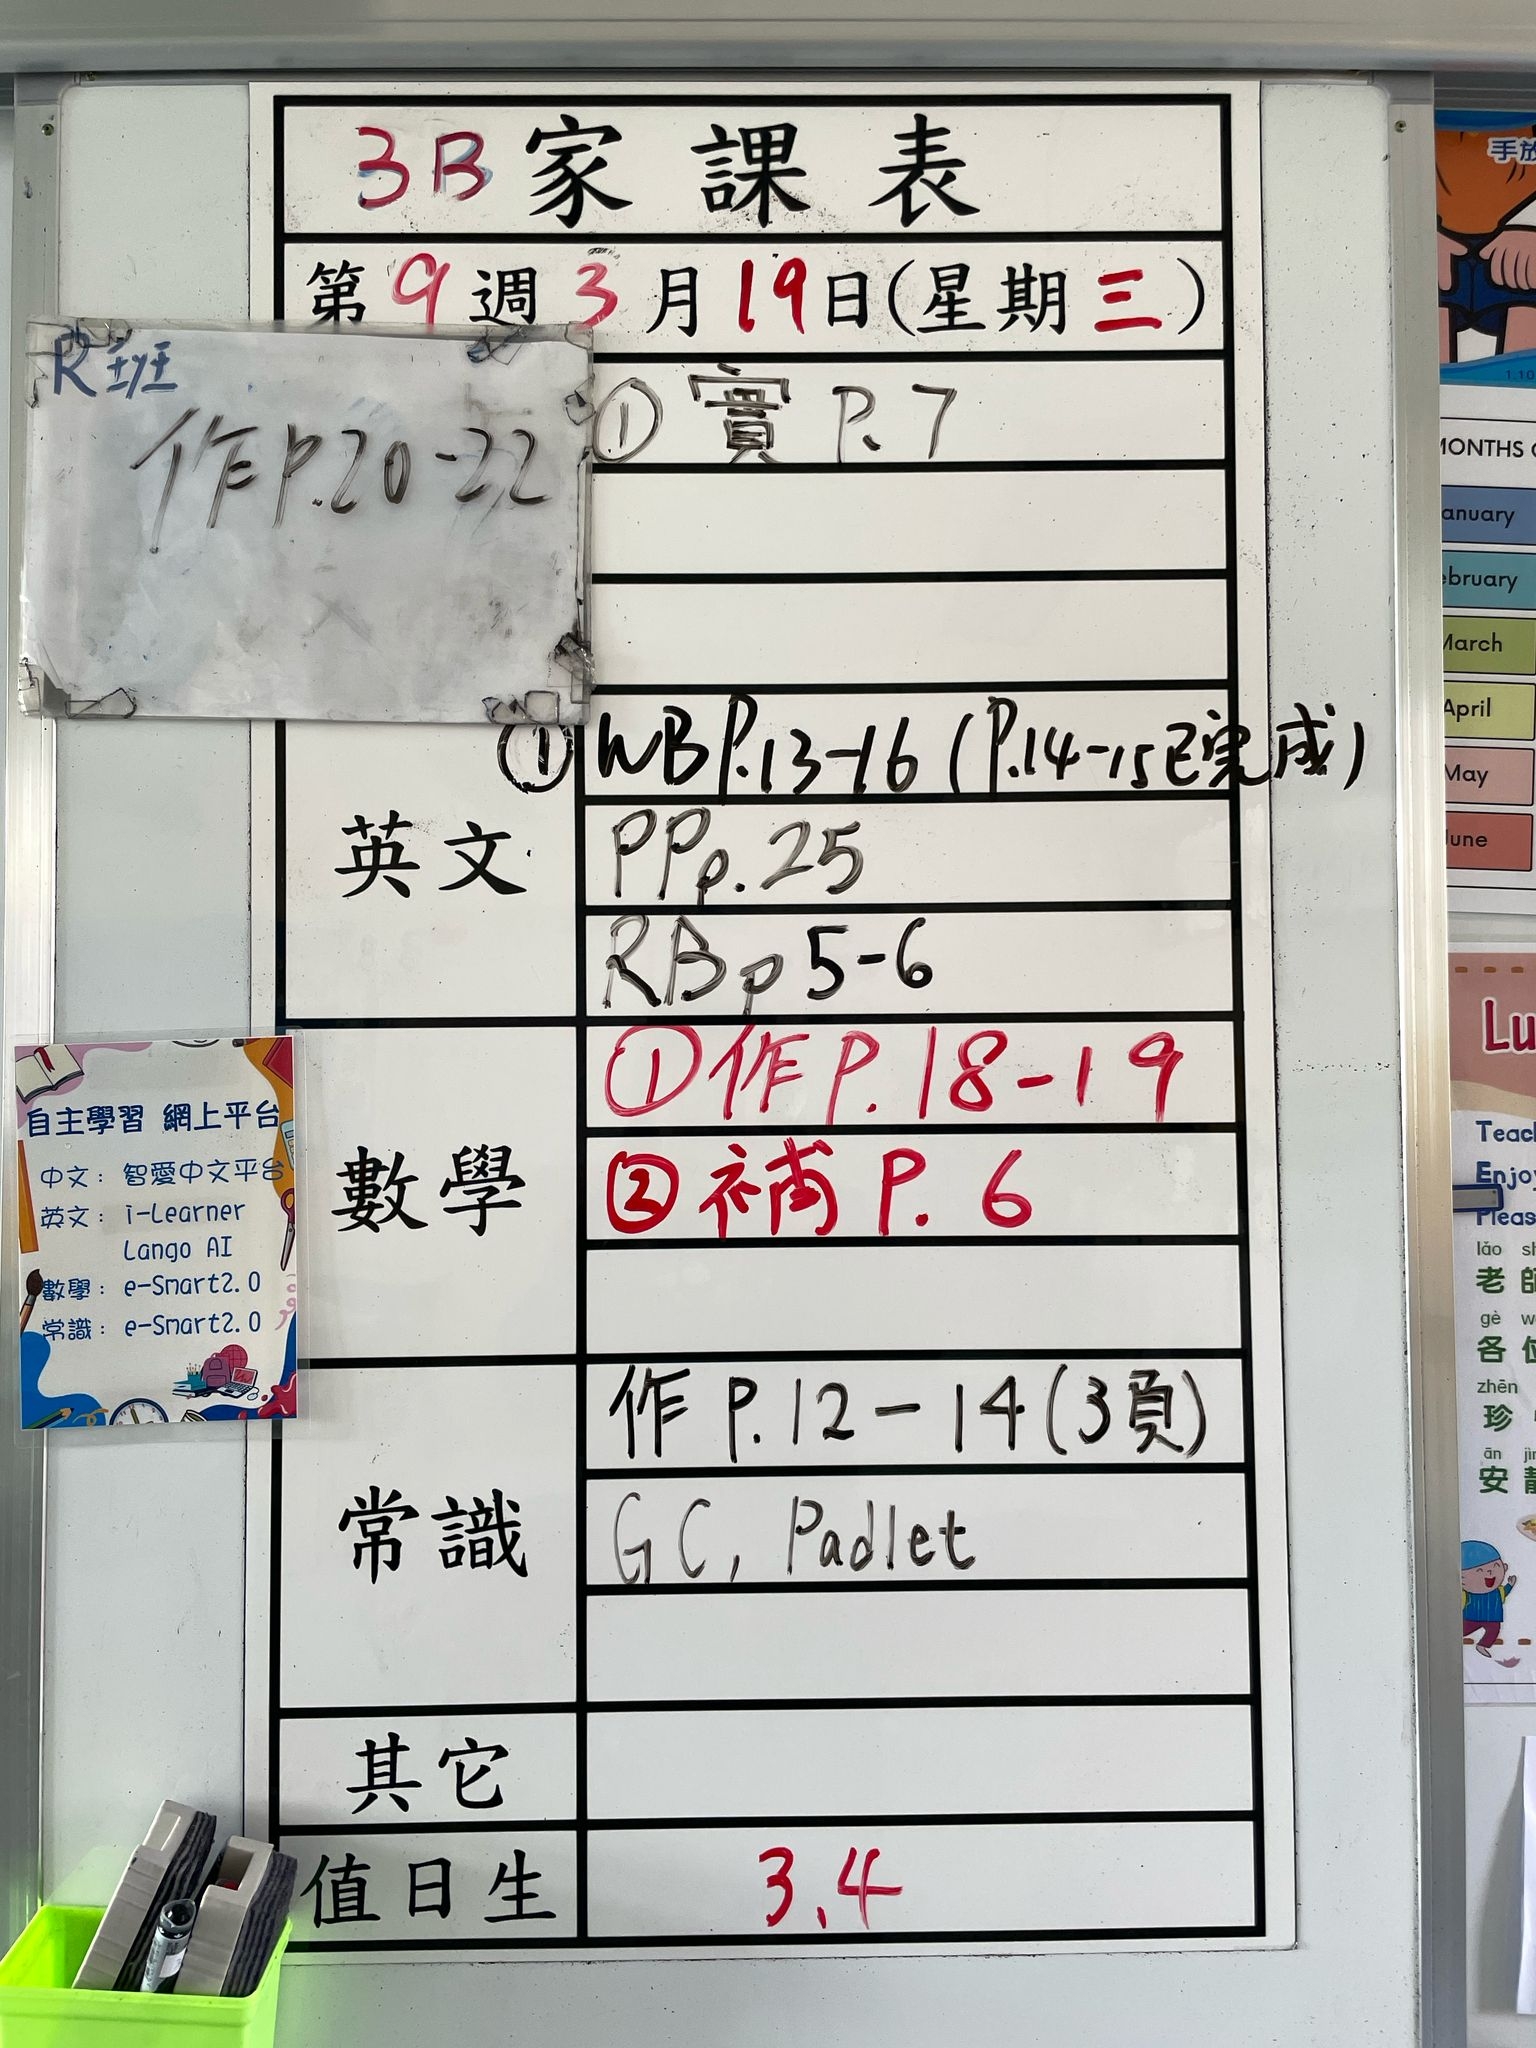 3B 家課表
第9週3月19日(星期三)
R班
作P.20-22
① 實 P.7
英文
① WB P.13-16 (P.14-15已完成)
PP p.25
RB p 5-6
數學
① 作 P.18-19
② 補 P.6
常識
作 P.12-14(3頁)
GC, Padlet
其它
值日生
3,4
自主學習 網上平台
中文：智愛中文平台
英文：i-Learner
Lango AI
數學：e-Smart2.0
常識：e-Smart2.0
手放
1.10
MONTHS
anuary
ebruary
March
April
May
June
Lu
Teac
Enjoy
Pleas
lǎo sh
老師
gè w
各位
zhēn
珍
ān jì
安靜